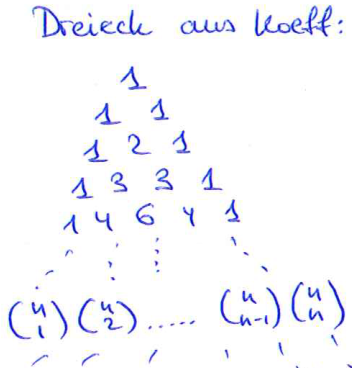 Dreieck aus Koeff:
1
1 1
1 2 1
1 3 3 1
1 4 6 4 1
(n 1) (n 2) ..... (n n-1) (n n)